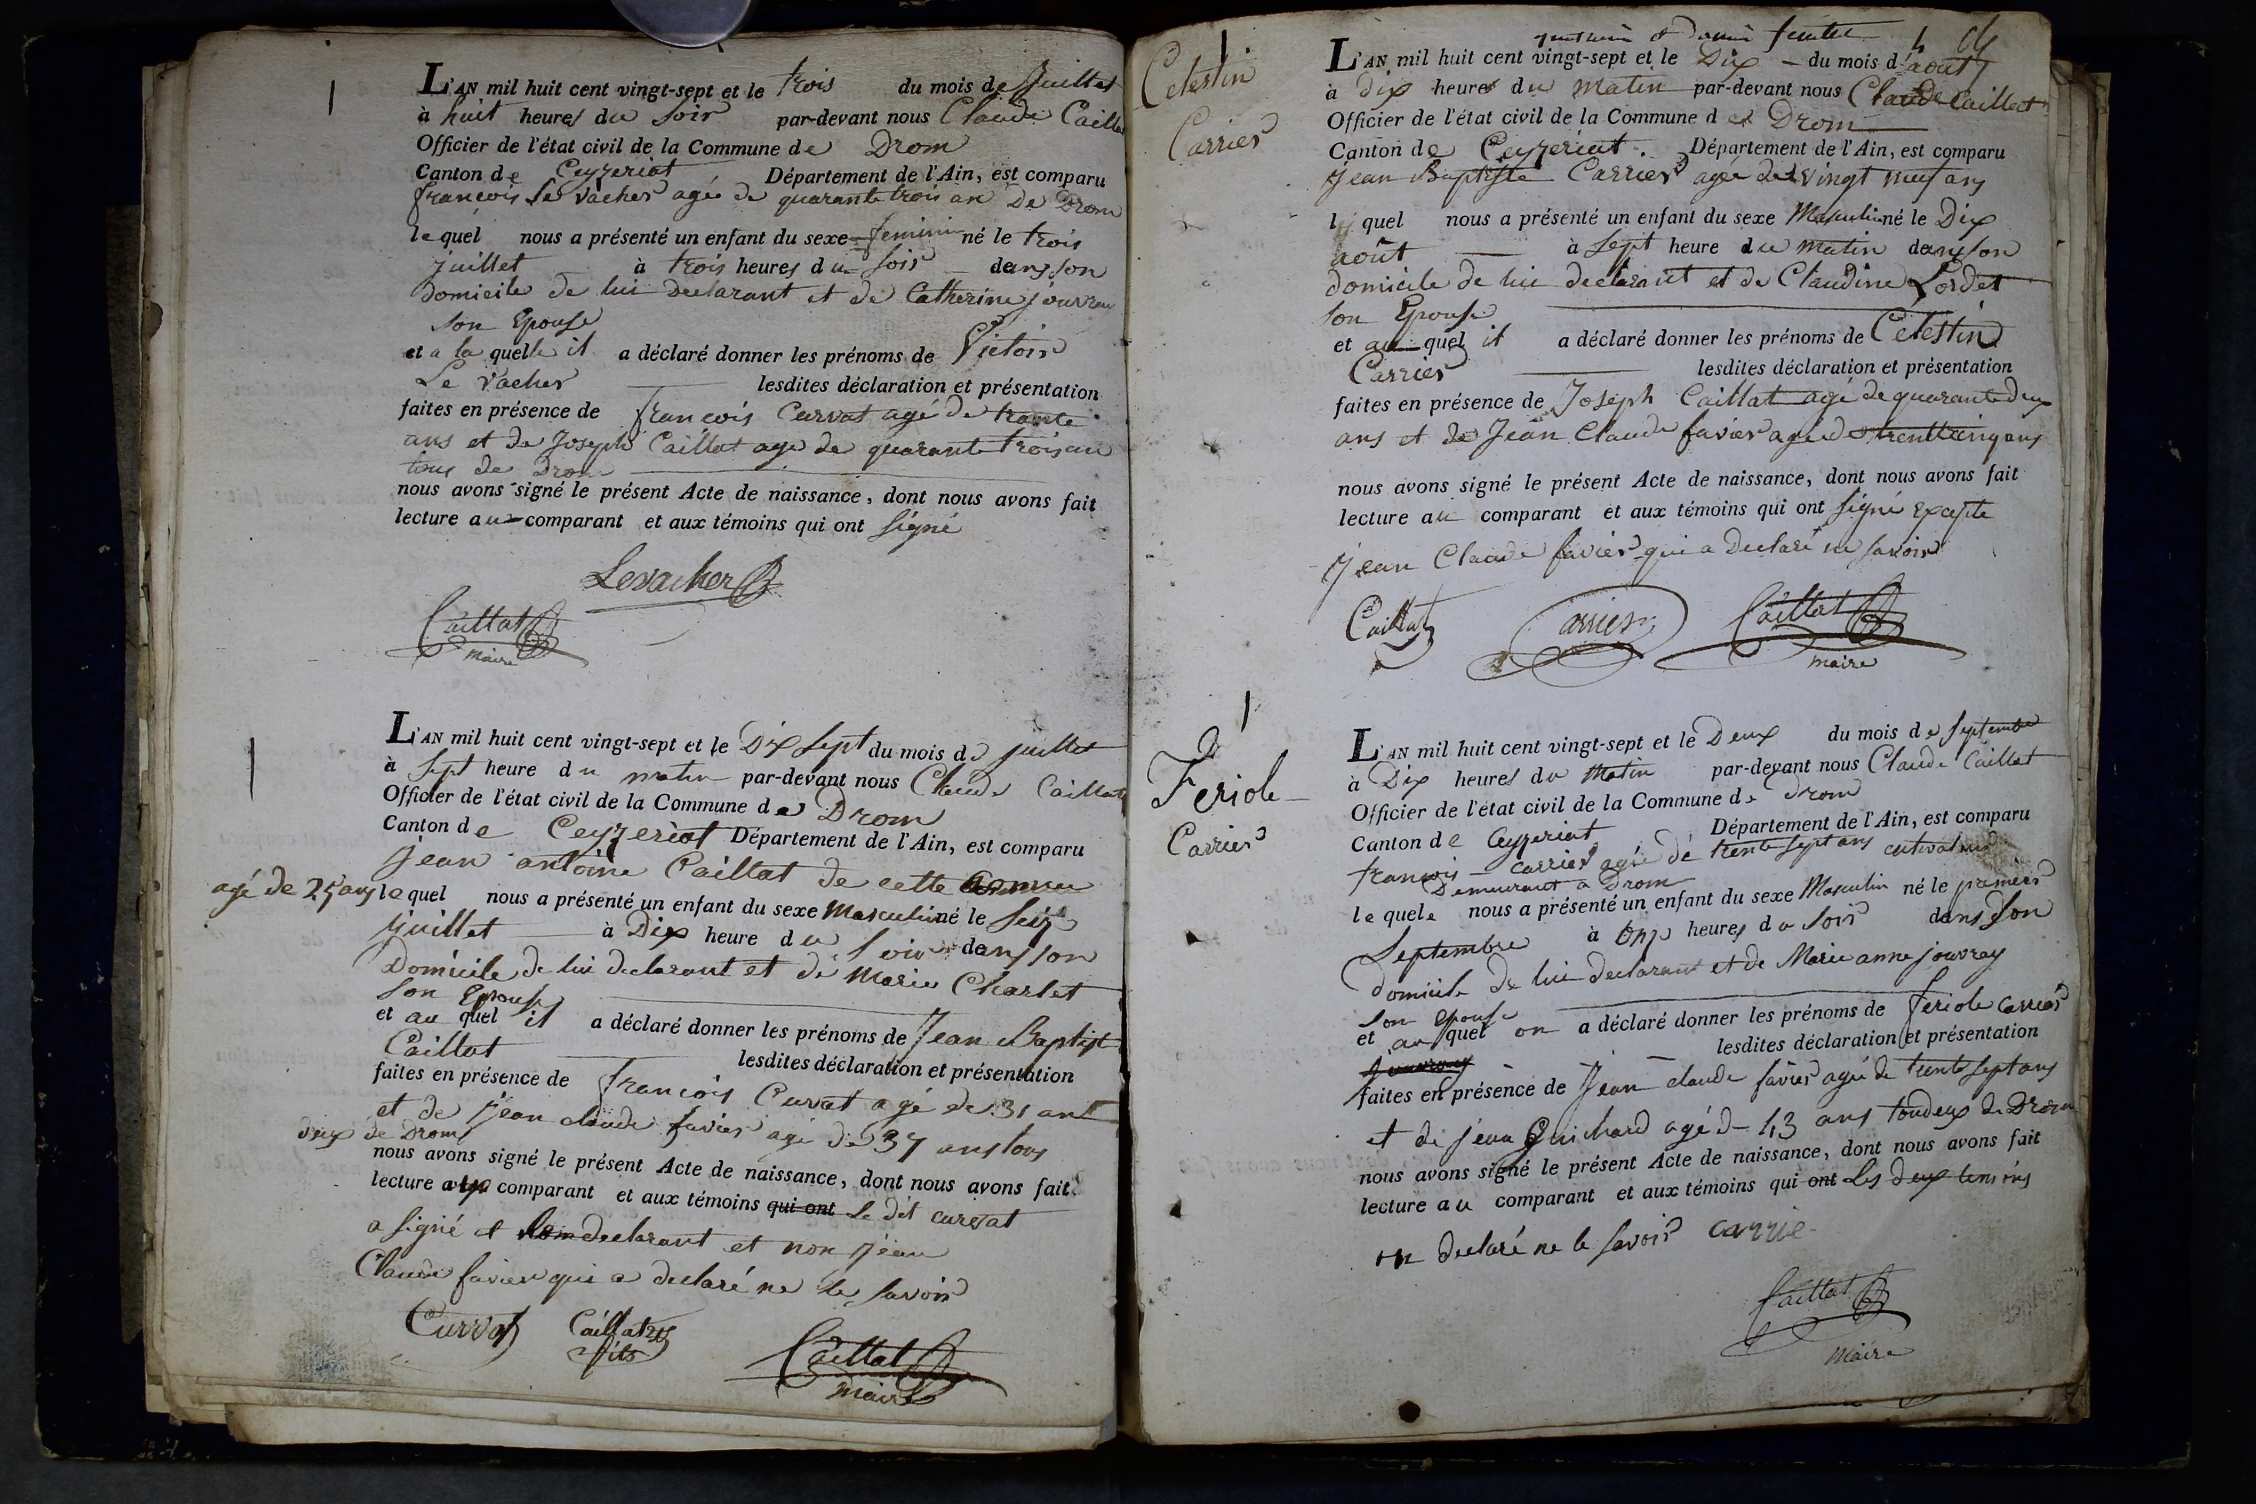 L'AN mil huit cent vingt-sept et le trois du mois de Juillet
à huit heures du soir par-devant nous Claude Caillat
Officier de l'état civil de la Commune de Drom
Canton de Ceyzeriat Département de l'Ain, est comparu
françois Le vacher agé de quarante trois an De Drom
lequel nous a présenté un enfant du sexe feminin né le trois
juillet à trois heures du soir dans son
Domicile de lui Declarant et de Catherine jouvray
son Epouse
et a la quelle il a déclaré donner les prénoms de Victoir
Le Vacher lesdites déclaration et présentation
faites en présence de françois Curvat agé de trante
ans et de Joseph Caillat age de quarante trois an
tous de Drom
nous avons signé le présent Acte de naissance, dont nous avons fait
lecture au comparant et aux témoins qui ont signé
Levacher
Caillat
maire
L'AN mil huit cent vingt-sept et le Dix sept du mois de juillet
à sept heure du matin par-devant nous Claude Caillat
Officier de l'état civil de la Commune de Drom
Canton de Ceyzeriat Département de l'Ain, est comparu
jean antoine Caillat de cette
agé de 25 ans lequel nous a présenté un enfant du sexe Masculin né le seize
juillet à Dix heure du soir dans son
Domicile de lui declarant et de Marie Charlet
son Epouse
et au quel il a déclaré donner les prénoms de Jean Baptist
Caillat lesdites déclaration et présentation
faites en présence de françois Curvat agé de 31 ans
et de jean claude favier agé de 37 ans tous
deux de Drom
nous avons signé le présent Acte de naissance, dont nous avons fait
lecture au comparant et aux témoins qui ont le dit curvat
a signé et declarant et non jean
Claude favier qui a declaré ne le savoir
Curvat Caillat fils
Caillat
maire
Celestin
Carrier
quatrieme et Dernier feuillet
L'AN mil huit cent vingt-sept et le Dix du mois d'août
à dix heures du matin par-devant nous Claude Caillat
Officier de l'état civil de la Commune de Drom
Canton de Ceyzeriat. Département de l'Ain, est comparu
jean Baptiste Carrier agé de vingt neuf ans
lequel nous a présenté un enfant du sexe Masculin né le Dix
août à sept heure du matin dans son
domicile de lui declarant et de Claudine Lordet
son Epouse
et au quel il a déclaré donner les prénoms de Celestin
Carrier lesdites déclaration et présentation
faites en présence de Joseph Caillat agé de quarante deux
ans et de Jean Claude favier agé de trentteinq ans
nous avons signé le présent Acte de naissance, dont nous avons fait
lecture au comparant et aux témoins qui ont signé Excepte
jean Claude favier qui a Declaré ne savoir
Caillat Carrier Caillat
maire
Feriole
Carrier
L'AN mil huit cent vingt-sept et le Deux du mois de septembre
à Dix heures du Matin par-devant nous Claude Caillat
Officier de l'état civil de la Commune de Drom
Canton de Ceyzeriat Département de l'Ain, est comparu
françois carrier agée de trente sept ans cultivateur
Demeurant a Drom
lequele nous a présenté un enfant du sexe Masculin né le premier
Septembre à onze heures du soir dans son
domicile de lui declarant et de Marie anne jouvray
son epouse
et au quel on a déclaré donner les prénoms de feriole carrier
jouvray lesdites déclaration et présentation
faites en présence de Jean claude favier agée de trente sept ans
et de jean Guichard agé de 43 ans toudeux de Drom
nous avons signé le présent Acte de naissance, dont nous avons fait
lecture au comparant et aux témoins qui ont Les deux temoins
on declaré ne le savoir carrie
Caillat
maire